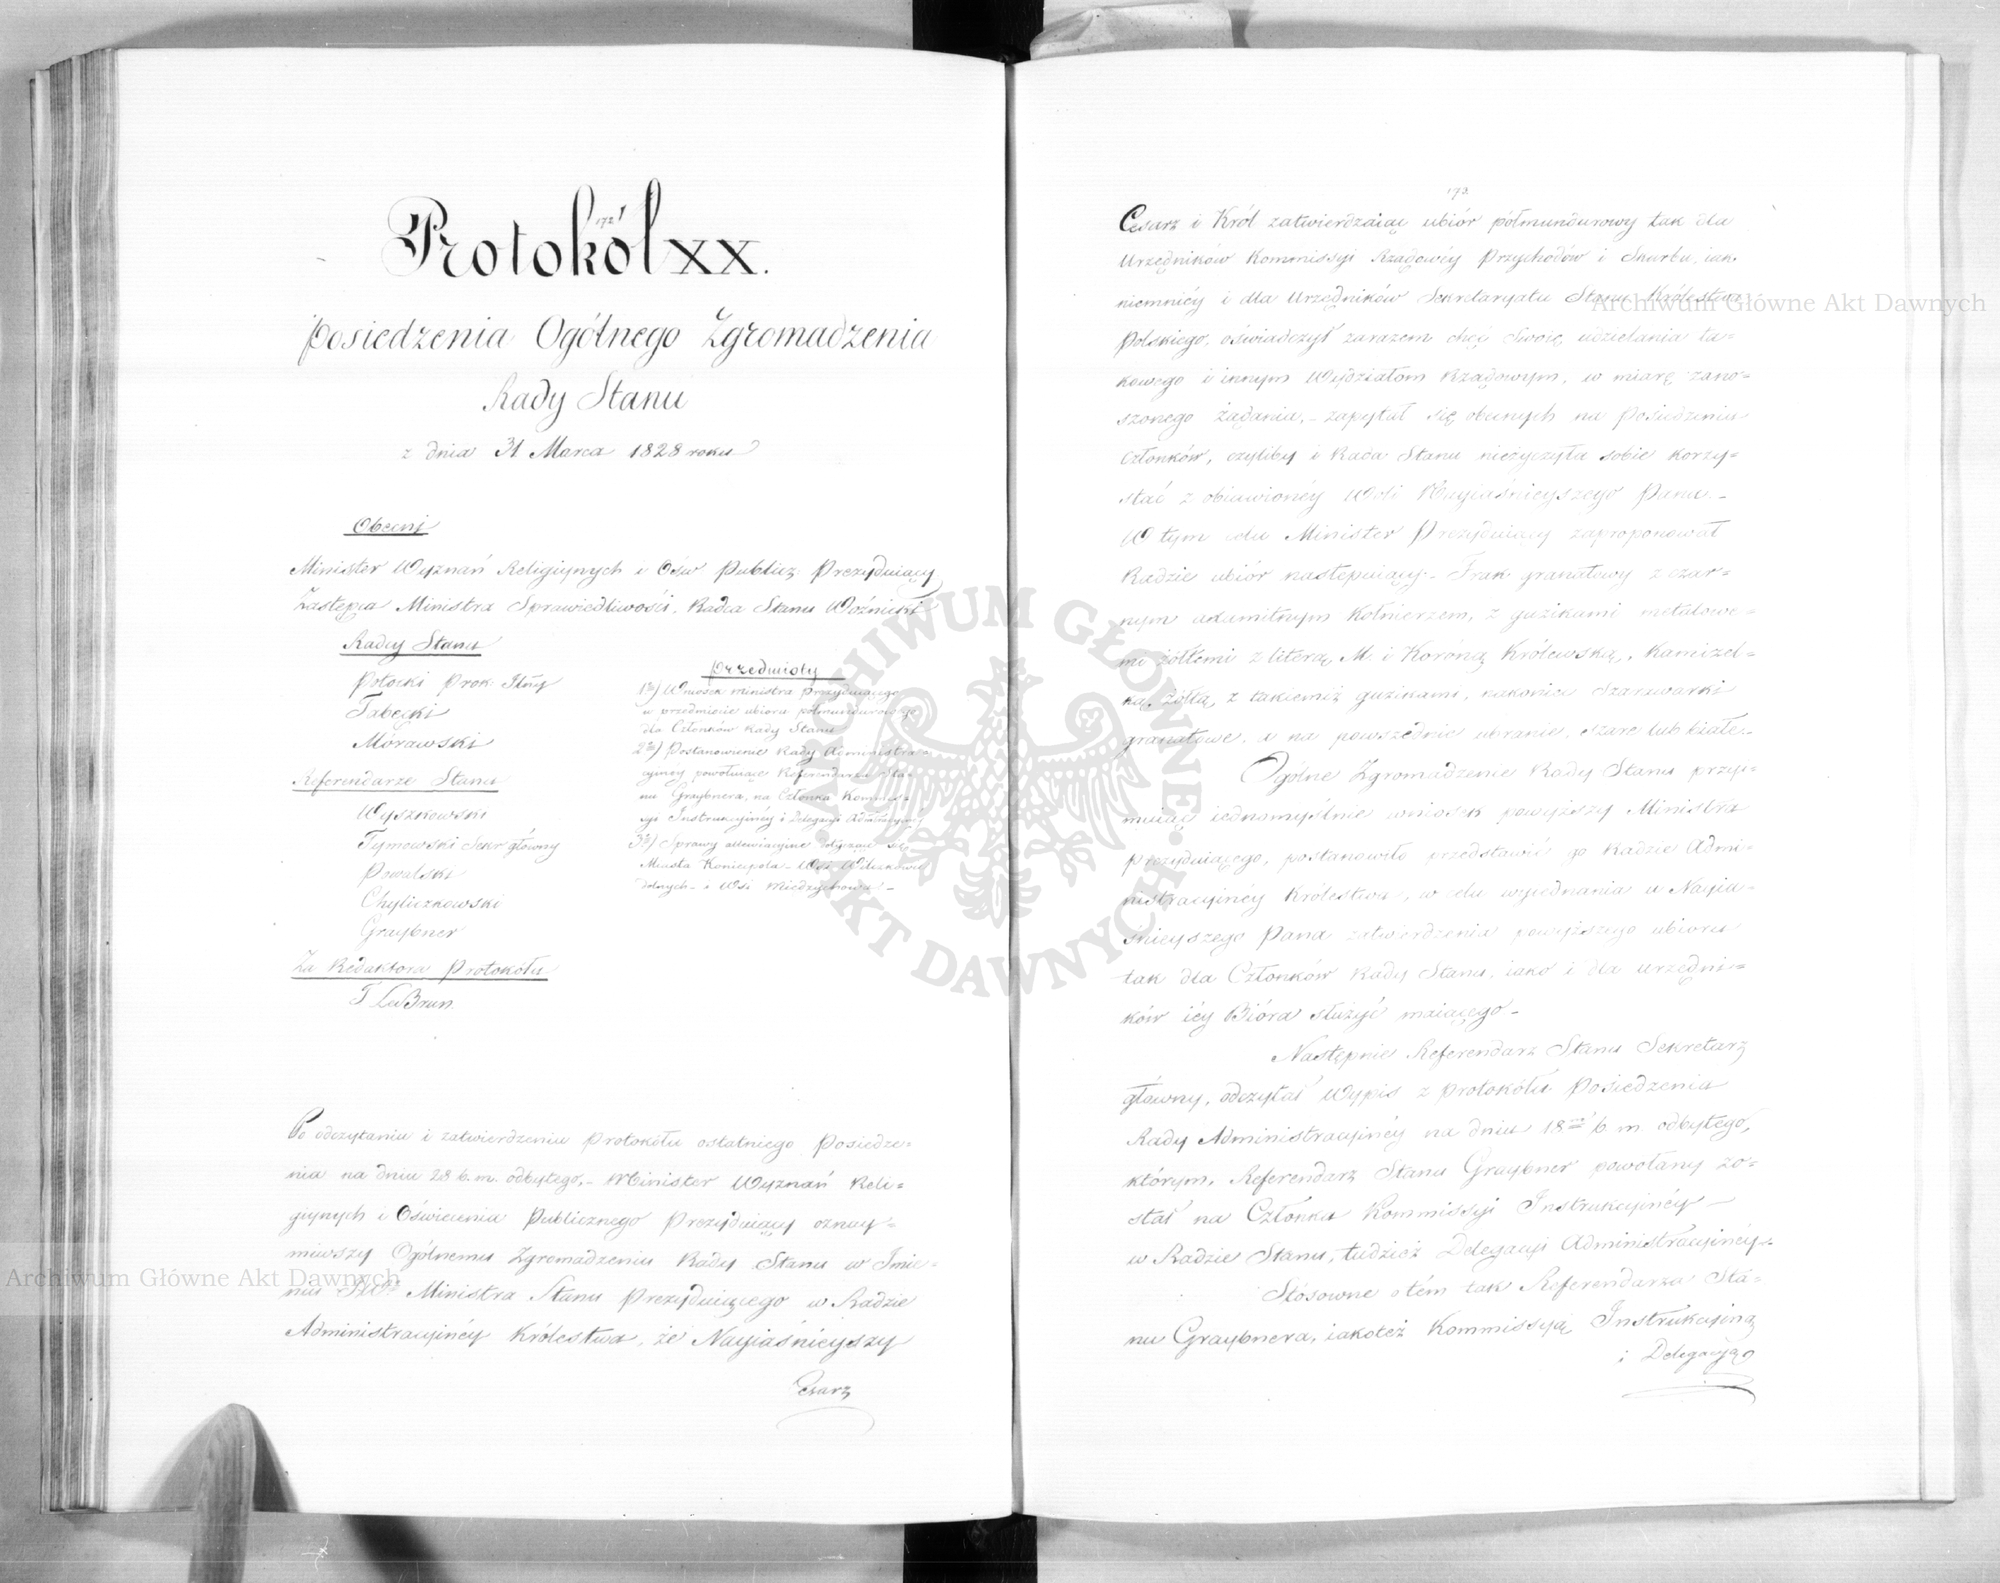 172'
Protokół XX.
Posiedzenia Ogólnego Zgromadzenia
Rady Stanu
z dnia 31 Marca 1828 roku
Obecni
Minister Wyznań Religiynych i Ośw Publicz: Prezyduiący
Zastępca Ministra Sprawiedliwości, Radca Stanu Woźnicki
Radcy Stanu
Potocki Prok: Jlny
Tabęcki
Morawski
Referendarze Stanu
Wyszkowski
Tymowski Sekr główny
Powalski
Chyliczkowski
Graybner
Za Redaktora Protokółu
T LeBrun.
Przedmioty
1o) Wniosek ministra Prezyduiącego
w przedmiocie ubioru półmundurowego
dla Członków Rady Stanu
2o) Postanowienie Rady Administra-
cyinéy powołuiące Referendarza Sta-
nu Graybnera, na Członka Kommis-
syi Instrukcyinéy i Delegacyi Administracyinéy
3o) Sprawy allewiacyine dotyczące się
Miasta Koniecpola - Wsi Wilczkowic
dolnych - i Wsi Miedzychowa -
Po odczytaniu i zatwierdzeniu Protokółu ostatniego Posiedze-
nia na dniu 28 b. m. odbytego, - Minister Wyznań Reli-
giynych i Oświecenia Publicznego Prezyduiący oznay-
miwszy Ogólnemu Zgromadzeniu Rady Stanu w Imie-
niu JWo Ministra Stanu Prezyduiącego w Radzie
Administracyinéy Królestwa, że Nayiaśnieyszy
Cesarz
172
Cesarz i Król zatwierdzaiąc ubiór półmundurowy tak dla
Urzędników Kommissyi Rządowéy Przychodów i Skarbu, iak
niemniéy i dla Urzędników Sekretaryatu Stanu Królestwa
Polskiego, oświadczył zarazem chęć Swoię udzielania ta-
kowego i innym Wydziałom Rządowym, w miarę zano-
szonego żądania, - zapytał się obecnych na Posiedzeniu
Członków, czyliby i Rada Stanu nieżyczyła sobie korzy-
stać z obiawionéy Woli Nayiaśnieyszego Pana. -
W tym celu Minister Prezyduiący zaproponował
Radzie ubiór następuiący - Frak granatowy z czar-
nym axamitnym kołnierzem, z guzikami metalowe-
mi żółtemi z literą M. i Koroną Królewską, Kamizel-
ką żółtą, z takiemiż guzikami, nakoniec Szarawarki
granatowe, a na powszednie ubranie, szare lub białe. -
Ogólne Zgromadzenie Rady Stanu przyi-
muiąc iednomyślnie wniosek powyższy Ministra
Prezyduiącego, postanowiło przedstawić go Radzie Admi-
nistracyinéy Królestwa, w celu wyiednania u Nayia-
śnieyszego Pana zatwierdzenia powyższego ubioru
tak dla Członków Rady Stanu, iako i dla Urzędni-
ków iéy Bióra służyć maiącego -
Następnie Referendarz Stanu Sekretarz
główny, odczytał Wypis z protokółu Posiedzenia
Rady Administracyinéy na dniu 18 b. m. odbytego,
którym, Referendarz Stanu Graybner powołany zo-
stał na Członka Kommissyi Instrukcyinéy -
w Radzie Stanu, tudzież Delegacyi Administracyinéy. -
Stósowne o tém tak Referendarza Sta-
nu Graybnera, iakoteż Kommissyią Instrukcyiną
i Delegacyą
Archiwum Główne Akt Dawnych
Archiwum Główne Akt Dawnych
ARCHIWUM GŁÓWNE AKT DAWNYCH